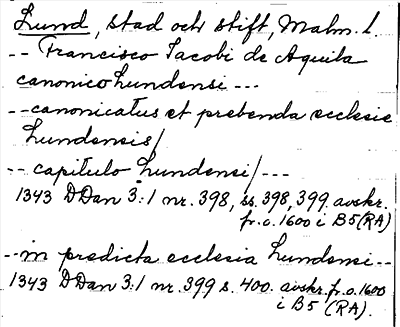 Lund, stad och stift, Malm. l.
-- Francisco Jacobi de Aquila
canonico lundensi ---
-- canonicatus et prebenda ecclesie
lundensis/
-- capitulo lundensi/---
1343 DDan 3:1 nr. 398, ss. 398, 399. avskr.
fr. o. 1600 i B5 (RA)
-- in predicta ecclesia lundensi --
1343 DDan 3:1 nr. 399 s. 400. avskr. fr. o. 1600
i B5 (RA).